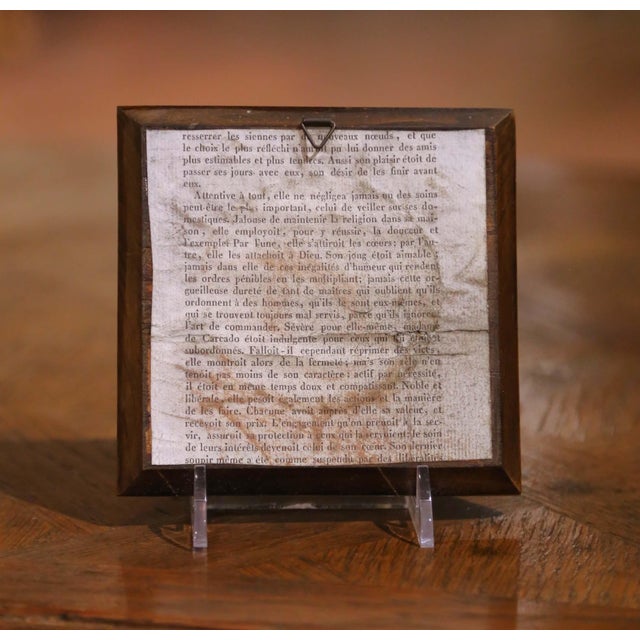 resserrer les siennes par de nouveaux nœuds, et que
le choix le plus réfléchi n'auroit pu lui donner des amis
plus estimables et plus tendres. Aussi son plaisir étoit de
passer ses jours avec eux, son désir de les finir avant
eux.
Attentive à tout, elle ne négligea jamais un des soins
peut-être le plus important, celui de veiller sur ses do-
mestiques. Jalouse de maintenir la religion dans sa mai-
son, elle employoit, pour y réussir, la douceur et
l'exemple. Par l'une, elle s'attiroit les cœurs; par l'au-
tre, elle les attachoit à Dieu. Son joug étoit aimable;
jamais dans elle de ces inégalités d'humeur qui rendent
les ordres pénibles en les multipliant; jamais cette or-
gueilleuse dureté de tant de maîtres qui oublient qu'ils
ordonnent à des hommes, qu'ils le sont eux-mêmes, et
qui se trouvent toujours mal servis, parce qu'ils ignorent
l'art de commander. Sévère pour elle-même, madame
de Carcado étoit indulgente pour ceux qui lui étoient
subordonnés. Falloit-il cependant réprimer des vices,
elle montroit alors de la fermeté; mais son zèle n'en
tenoit pas moins de son caractère: actif par nécessité,
il étoit en même temps doux et compatissant. Noble et
libérale, elle pesoit également les actions et la manière
de les faire. Chacune avoit auprès d'elle sa valeur, et
recevoit son prix. L'engagement qu'on prenoit à la ser-
vir, assuroit sa protection à ceux qui la servoient: le soin
de leurs intérêts devenoit celui de son cœur. Son dernier
soupir même a été comme suspendu par des libéralités